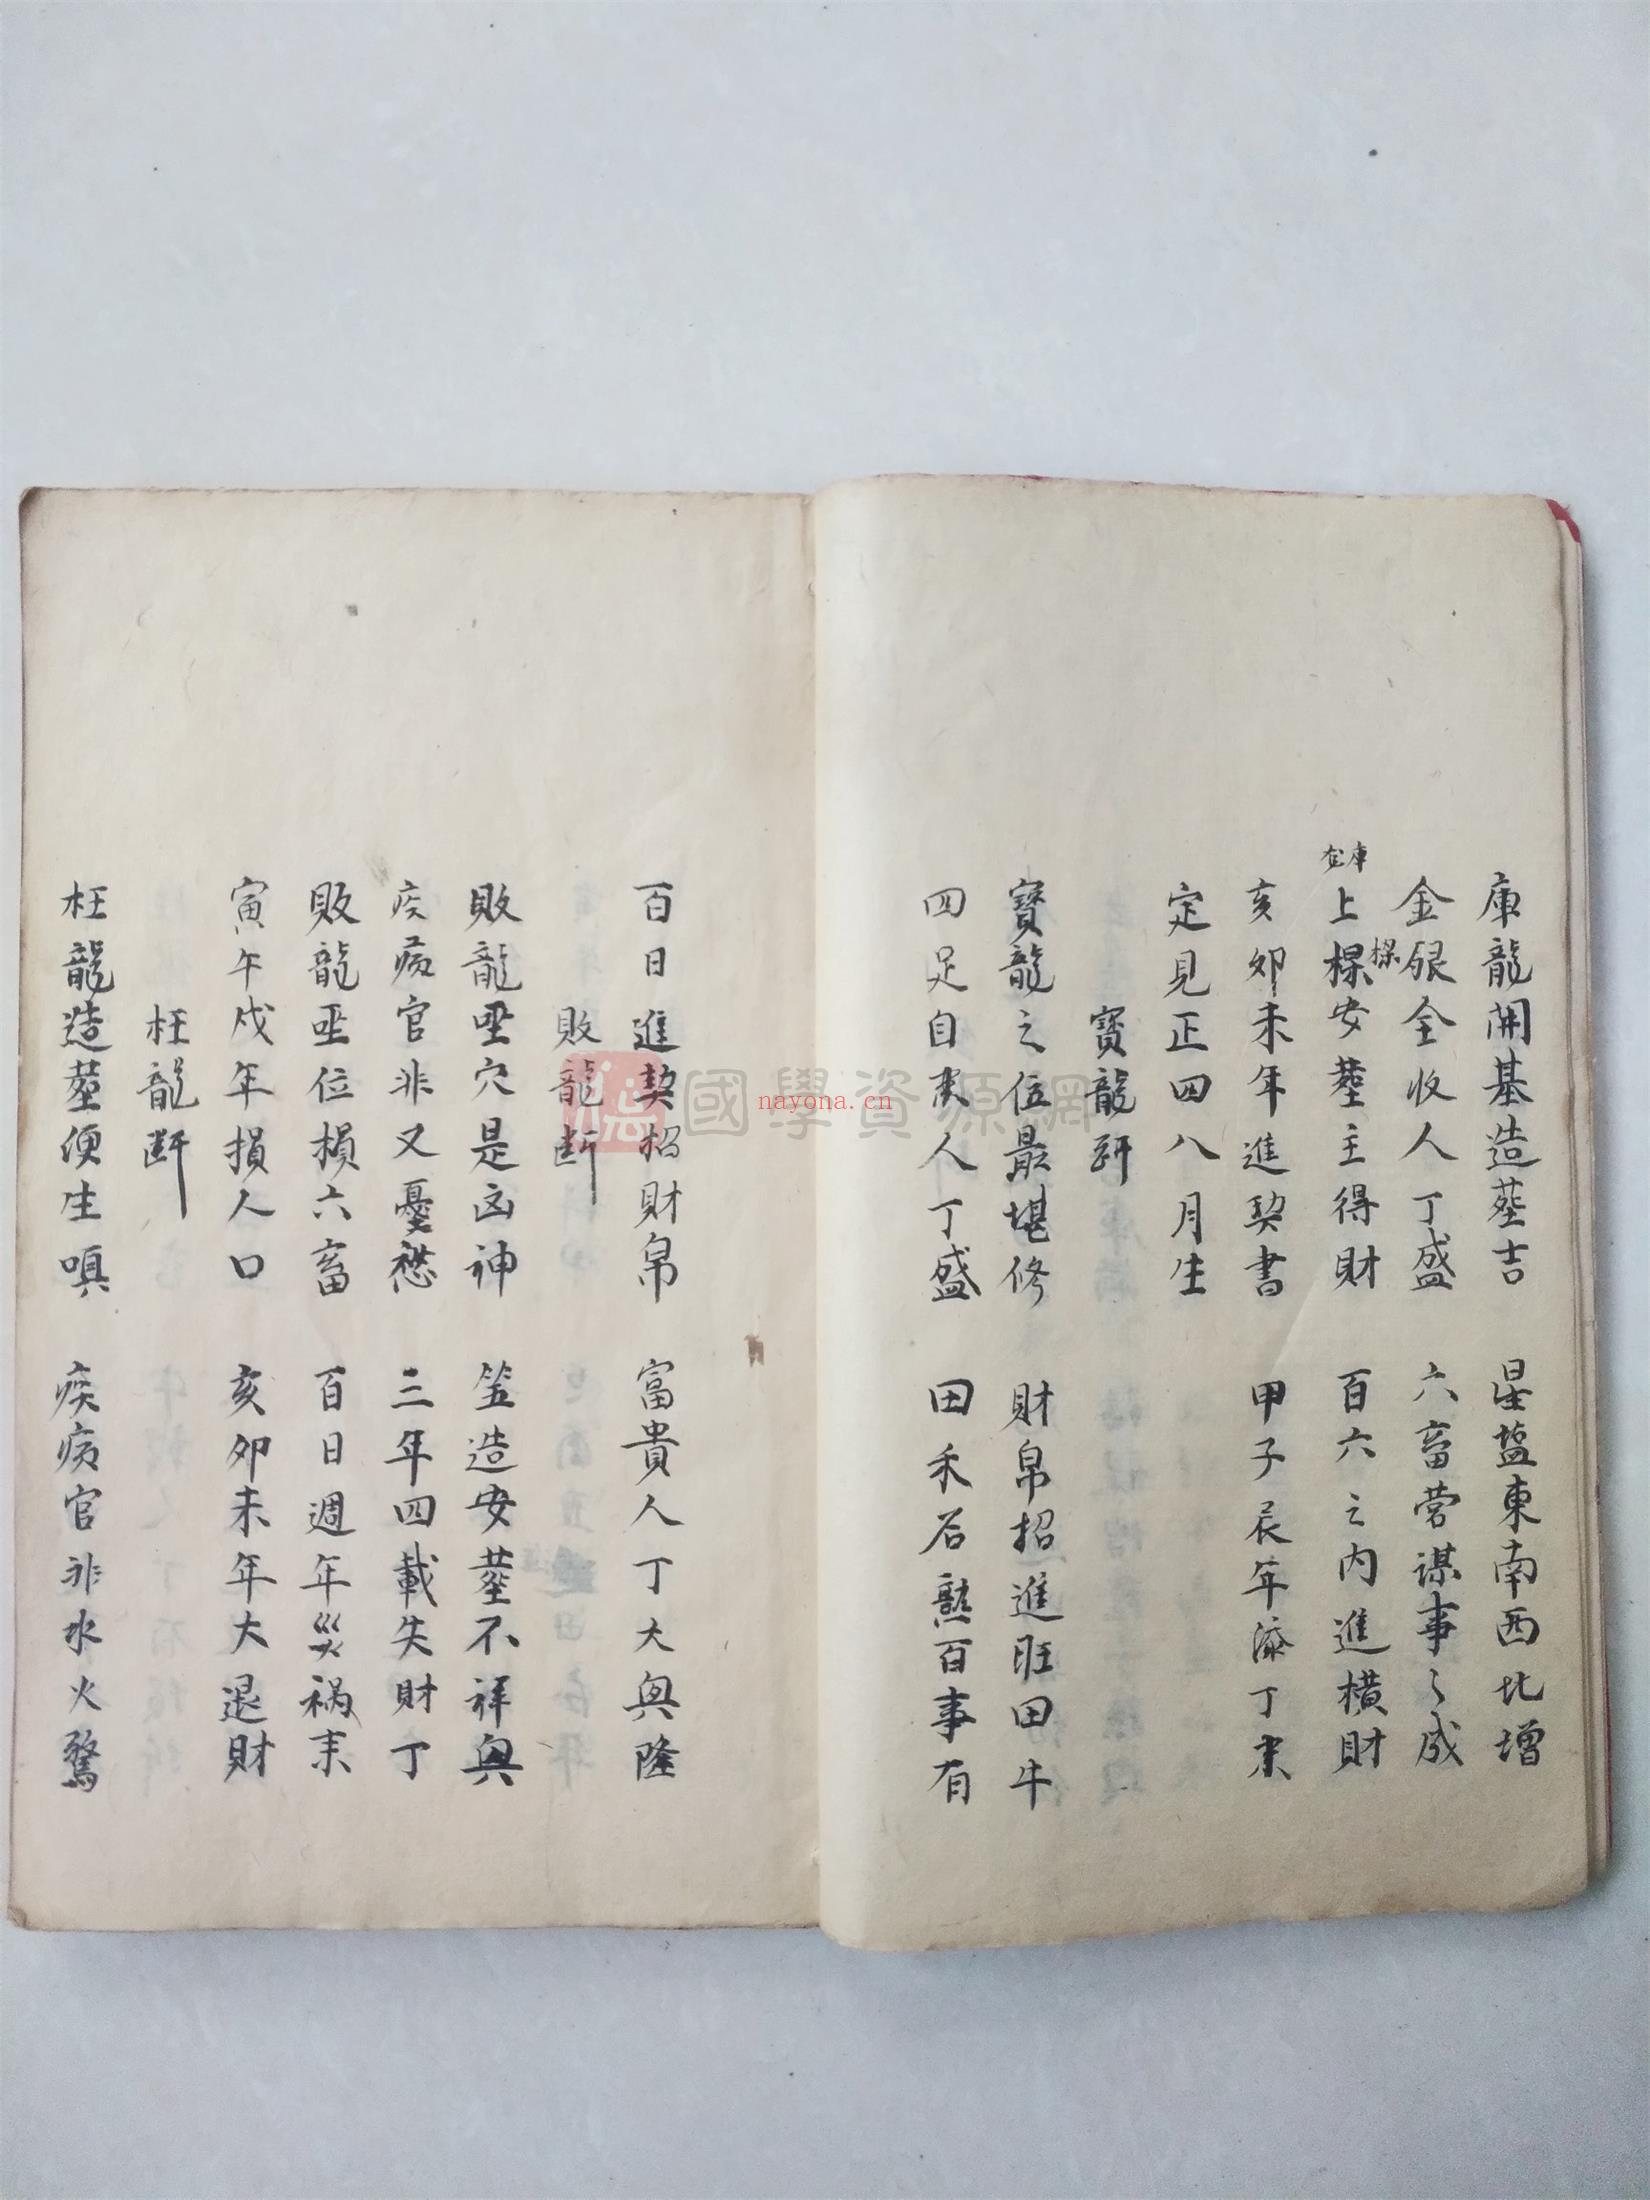 庫龍開基造塟吉　星盐東南西北增
金银全收人丁盛　六畜营谋事々成
庫在
上樑安塟主得财　百六之内進横财
樑
亥卯未年進契書　甲子辰年添丁来
定見正四八月生
寳龍断
寳龍之位最堪修　财帛招進旺田牛
四足自来人丁盛　田禾石熟百事有
百日進契招财帛　富貴人丁大興隆
敗龍断
敗龍坐穴是凶神　竖造安塟不祥興
疾病官非又憂愁　三年四載失财丁
敗龍坐位損六畜　百日週年災祸来
寅午戌年損人口　亥卯未年大退财
枉龍断
枉龍造塟便生嗔　疾病官非水火驚
德
國學資源網
nayona.cn